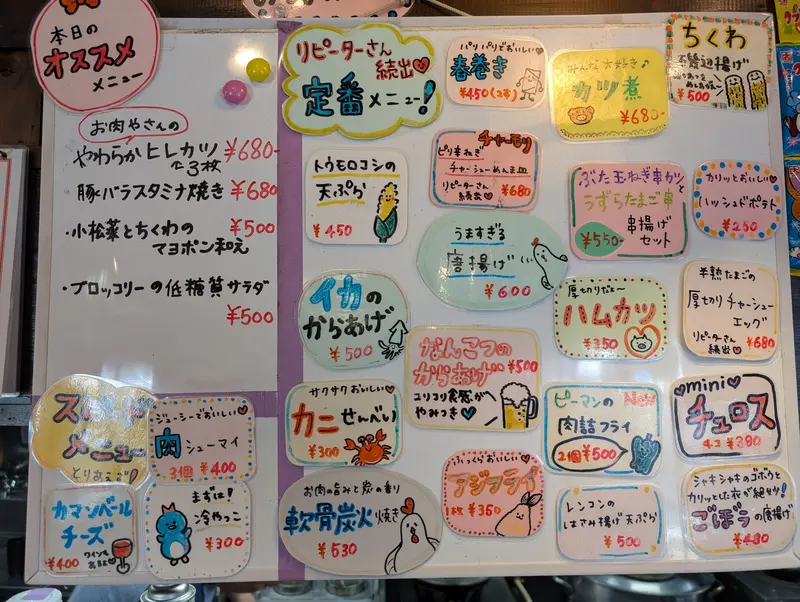 本日の
オススメ
メニュー
お肉やさんの
やわらかヒレカツ ¥680-
3枚
豚バラスタミナ焼き ¥680
・小松菜とちくわの
マヨポン和え
¥500
・ブロッコリーの低糖質サラダ
¥500
リピーターさん
続出♡
定番メニュー!
パリパリでおいしい♡
春巻き
¥450(2本)
みんな大好き♪
カツ煮
¥680-
ちくわ
磯辺揚げ
¥500
トウモロコシの
天ぷら
¥450
チャーモリ
ピリ辛ねぎ
チャーシューめんま
リピーターさん
続出♡
¥680
ぶた玉ねぎ串カツと
うずらたまご串
串揚げ
セット
¥550-
カリッとおいしい♡
ハッシュドポテト
¥250
うますぎる
唐揚げ
¥600
イカの
からあげ
¥500
厚切りだヨ〜
ハムカツ
¥350
半熟たまごの
厚切りチャーシュー
エッグ
リピーターさん
続出♡
¥680
なんこつの
からあげ
¥500
コリコリ食感が
やみつき♡
サクサクおいしい♡
カニせんべい
¥300
ピーマンの
肉詰フライ
2個¥500
mini
チュロス
4コ¥280
お肉の旨みと炭の香り
軟骨炭火焼き
¥530
ふっくらおいしい♡
アジフライ
1枚¥350
レンコンの
はさみ揚げ天ぷら
¥500
シャキシャキのゴボウと
カリッとした衣が絶妙!
ごぼうの唐揚げ
¥480
スピード
メニュー
とりあえず!
ジューシーでおいしい♡
肉シューマイ
3個 ¥400
カマンベール
チーズ
¥400
ワインも
あるよ♡
まずは!
冷やっこ
¥300